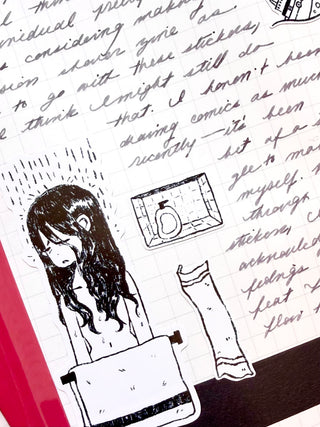 I thin
nidual pret
s considering making
ssion shower zine as
to go with these stickers,
I think I might still do
that. I haven't been
drawing comics as much
recently—it's been
bit of a
gle to ma
myself.
through
stickers,
acknowled
feelings
feat
flow